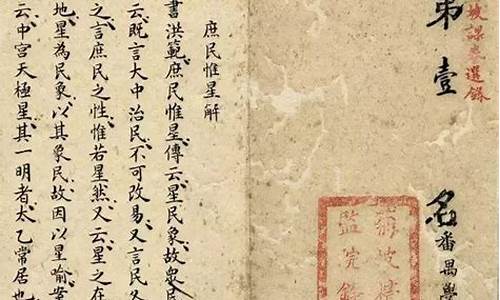 坡課卷選錄
第壹名
番禺學
坡
監院
庶民惟星解
書洪範庶民惟星傳云星民象故眾民
云既言大中治民不可改易又言民又
之言庶民之性惟若星然又云星之在
地星為民象以其象民故因以星喻案
云中宮天極星其一明者太乙常居也